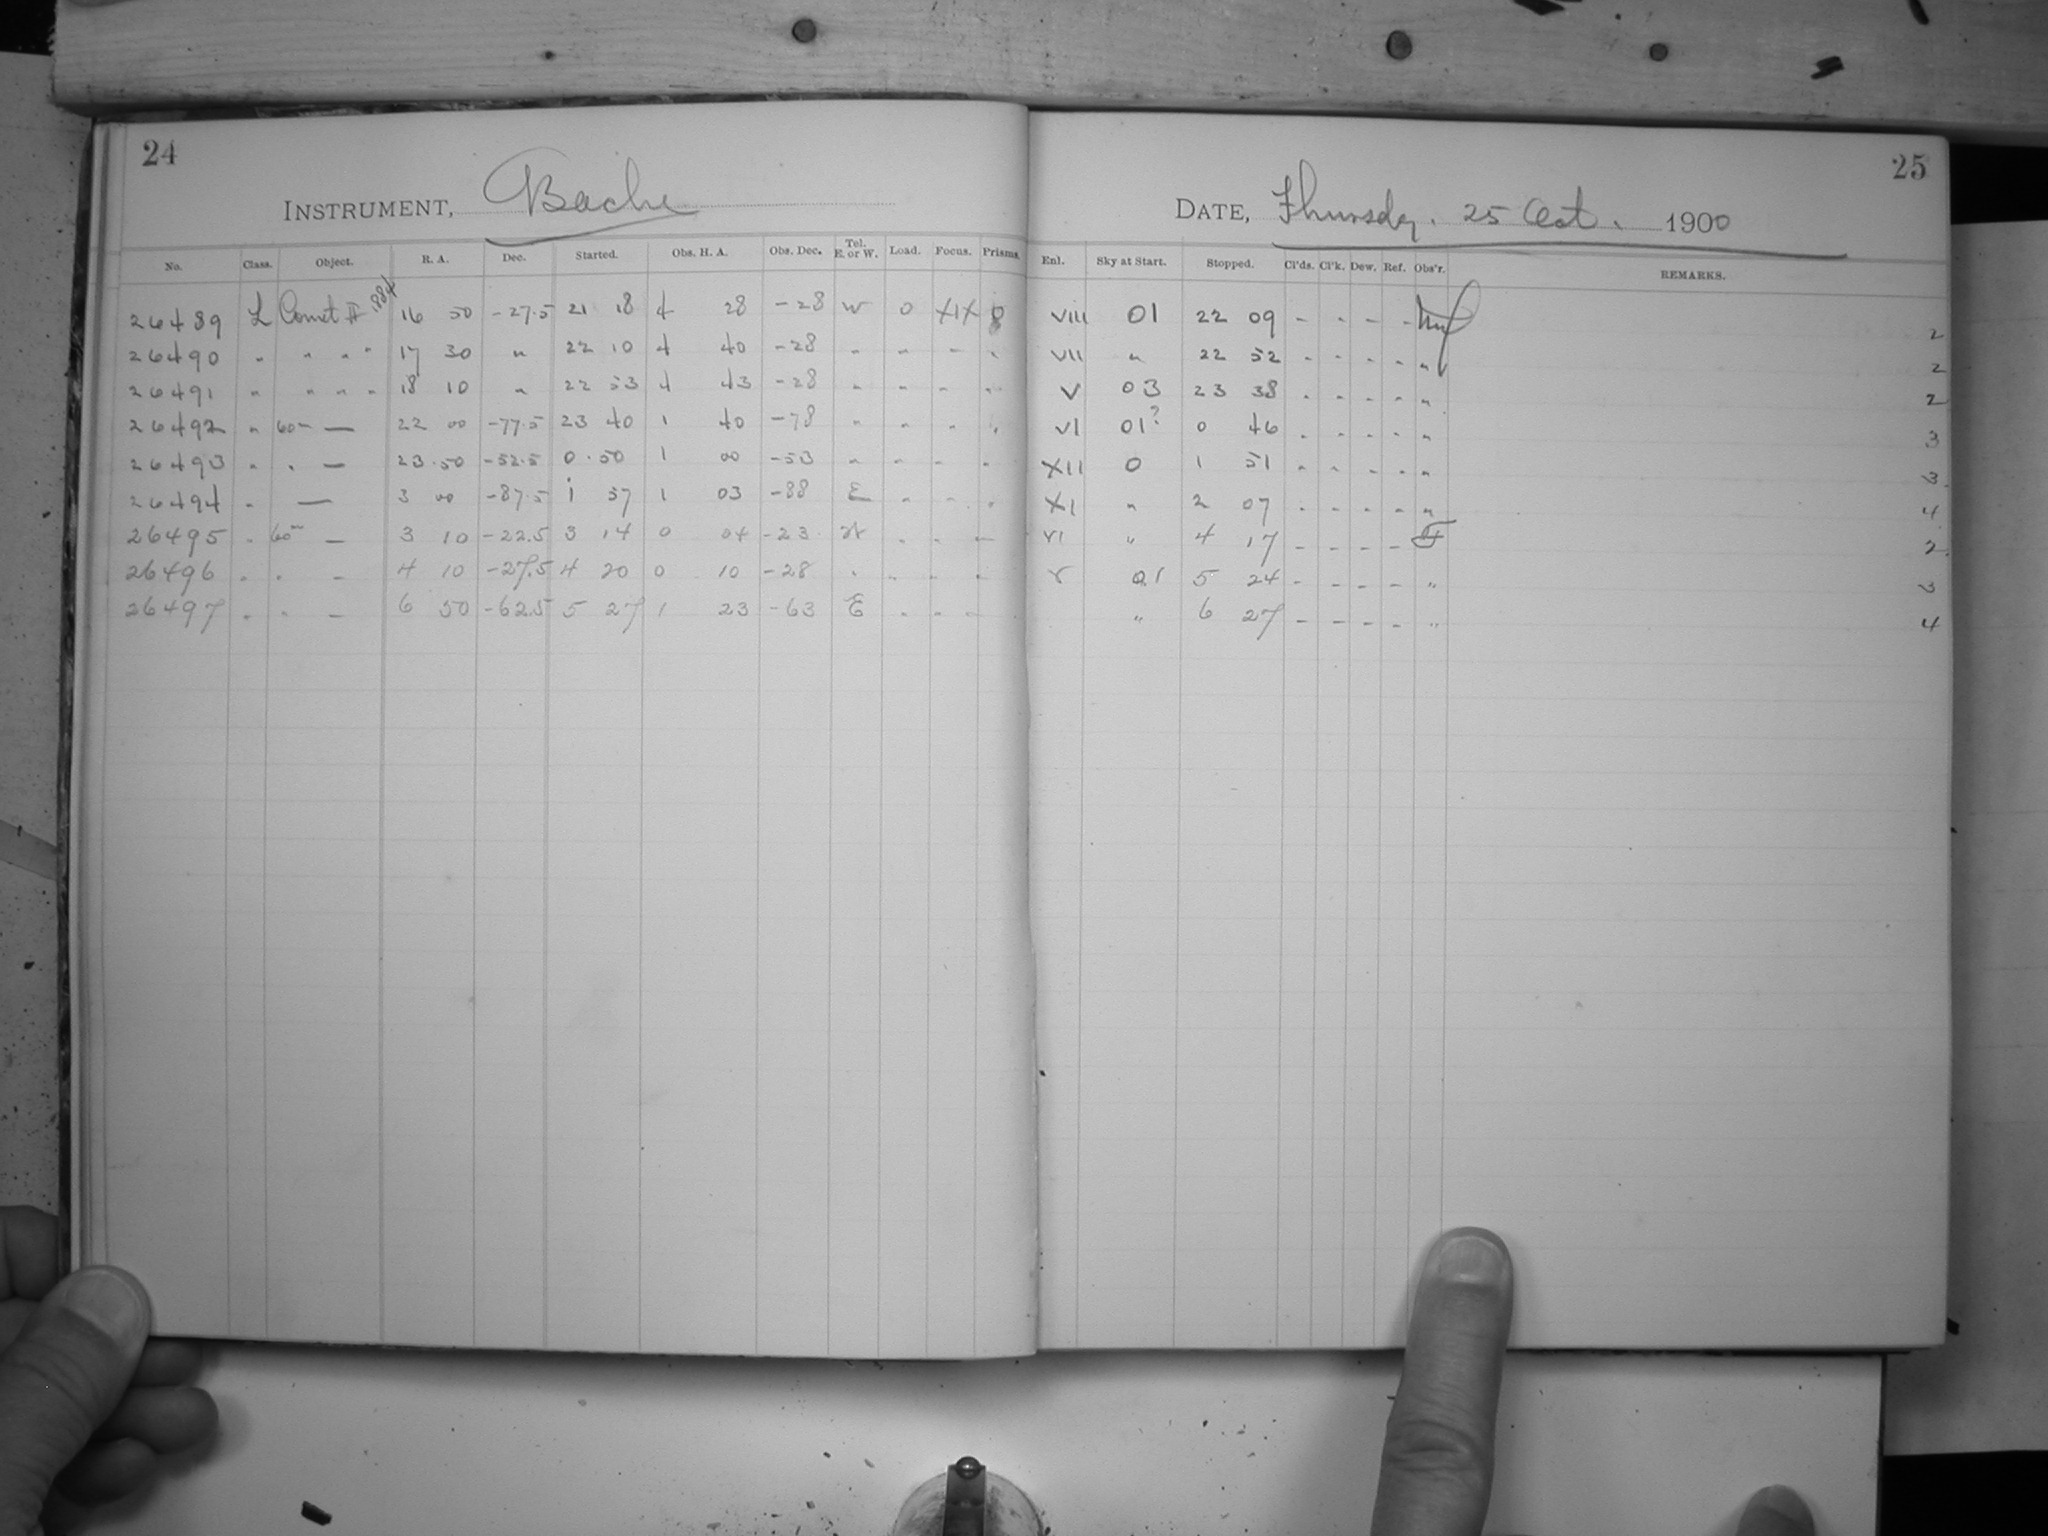 24
INSTRUMENT, Bache
No. Class. Object. R. A. Dec. Started. Obs. H. A. Obs. Dec. Tel. E. or W. Load. Focus. Prisms.
26489 L Comet II 1884 16 50 -27.5 21 18 4 28 -28 W 0 XIX 0
26490 " " " " 17 30 " 22 10 4 40 -28 " " - "
26491 " " " " " 18 10 " 22 53 4 43 -28 " " " "
26492 " 60m — 22 00 -77.5 23 40 1 40 -78 " " " "
26493 " " — 23 50 -52.5 0 50 1 00 -53 " " " "
26494 " — 3 00 -87.5 1 57 1 03 -88 E " " "
26495 " 60m — 3 10 -22.5 3 14 0 04 -23 W " " —
26496 " " - 4 10 -27.5 4 20 0 10 -28 " " " "
26497 " " - 6 50 -62.5 5 27 1 23 -63 E " " "
25
DATE, Thursday. 25 Oct. 1900
Enl. Sky at Start. Stopped. Cl'ds. Cl'k. Dew. Ref. Obs'r. REMARKS.
VIII 01 22 09 - - - - 2
VII " 22 52 - - - - " 2
V 03 23 38 - - - - " 2
VI 01? 0 46 - - - - " 3
XII 0 1 51 - - - - " 3
XI " 2 07 - - - - " 4
VI " 4 17 - - - - 2
V 01 5 24 - - - - " 3
" 6 27 - - - - " 4